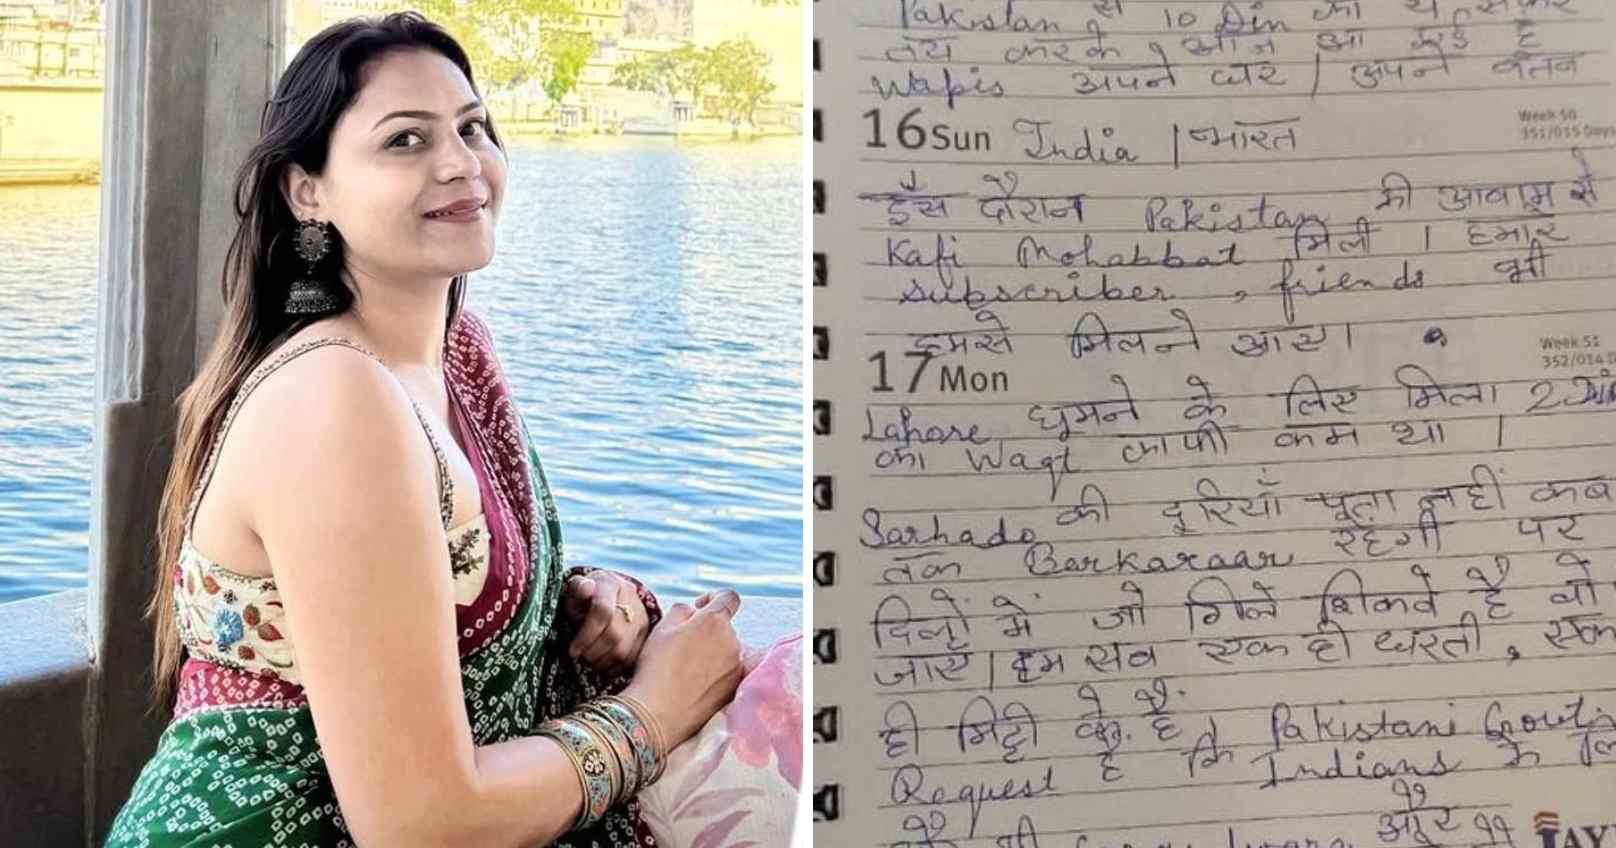 Pakistan से 10 Din का ये सफर
तय करके आज आ गई है
Wapis अपने घर | अपने वतन
Week 50
351/015 Days
16 Sun India | भारत
इस दौरान Pakistan की आवाम से
Kafi Mohabbat मिली । हमारे
subscriber, friends भी
हमसे मिलने आए।
Week 51
352/014
17 Mon
Lahore घूमने के लिए मिला 2 Din
का Waqt काफी कम था ।
Sarhado की दूरियाँ पता नहीं कब
तक Barkaraar रहेगी पर
दिलों में जो गिले शिकवे है वो
जाएँ। हम सब एक ही धरती, एक
ही मिट्टी के है। Pakistani Govt. से
Request है कि Indians के लिए
और
JAY